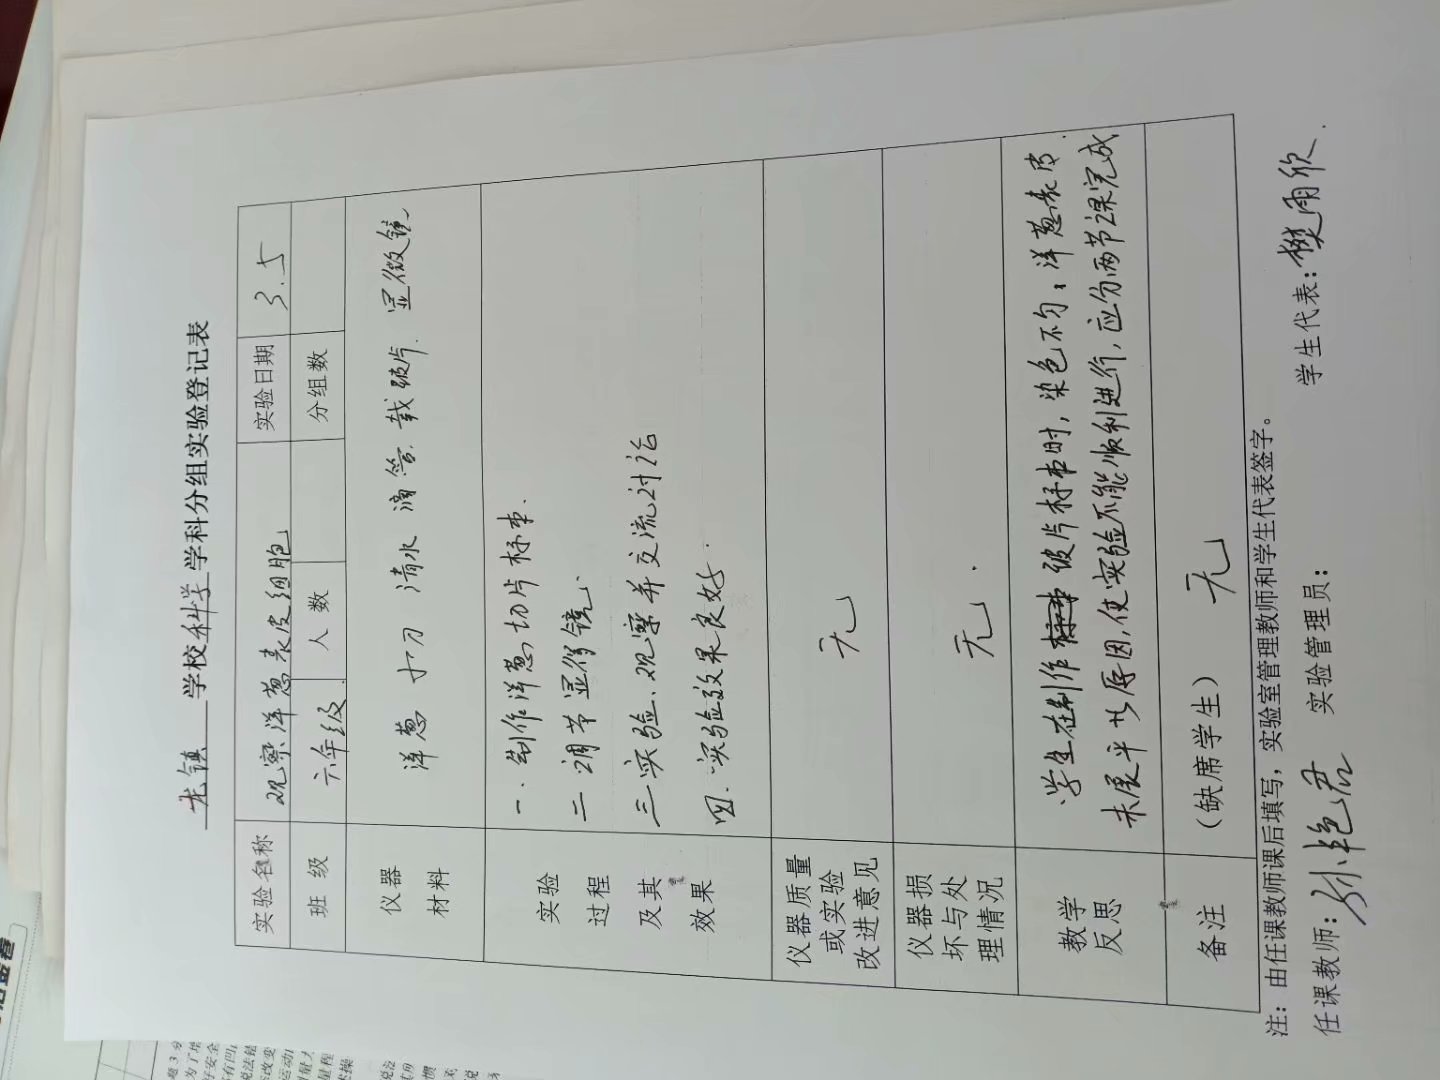 龙镇 学校科学学科分组实验登记表
实验名称 观察洋葱表皮细胞 实验日期 3.5
班 级 六年级 人 数 分组数
仪器
材料
洋葱 小刀 清水 滴管 载玻片 显微镜
实验
过程
及其
效果
一.制作洋葱切片标本.
二 调节显微镜、
三 实验、观察并交流讨论
四.实验效果良好.
仪器质量
或实验
改进意见
无
仪器损
坏与处
理情况
无.
教学
反思
学生在制作玻片标本时,染色不匀,洋葱表皮
未展平 原因,使实验不能顺利进行,应分两节课完成.
备注
(缺席学生) 无
注:由任课教师课后填写,实验室管理教师和学生代表签字。
任课教师:孙艳君 实验管理员: 学生代表:樊雨欣.